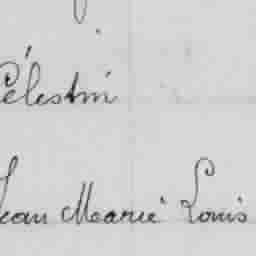 Célestin
Jean Marie Louis